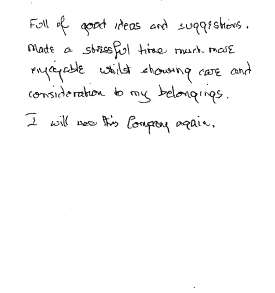 Full of good ideas and suggestions.
Made a stressful time much more
enjoyable whilst showing care and
consideration to my belongings.
I will use this Company again.